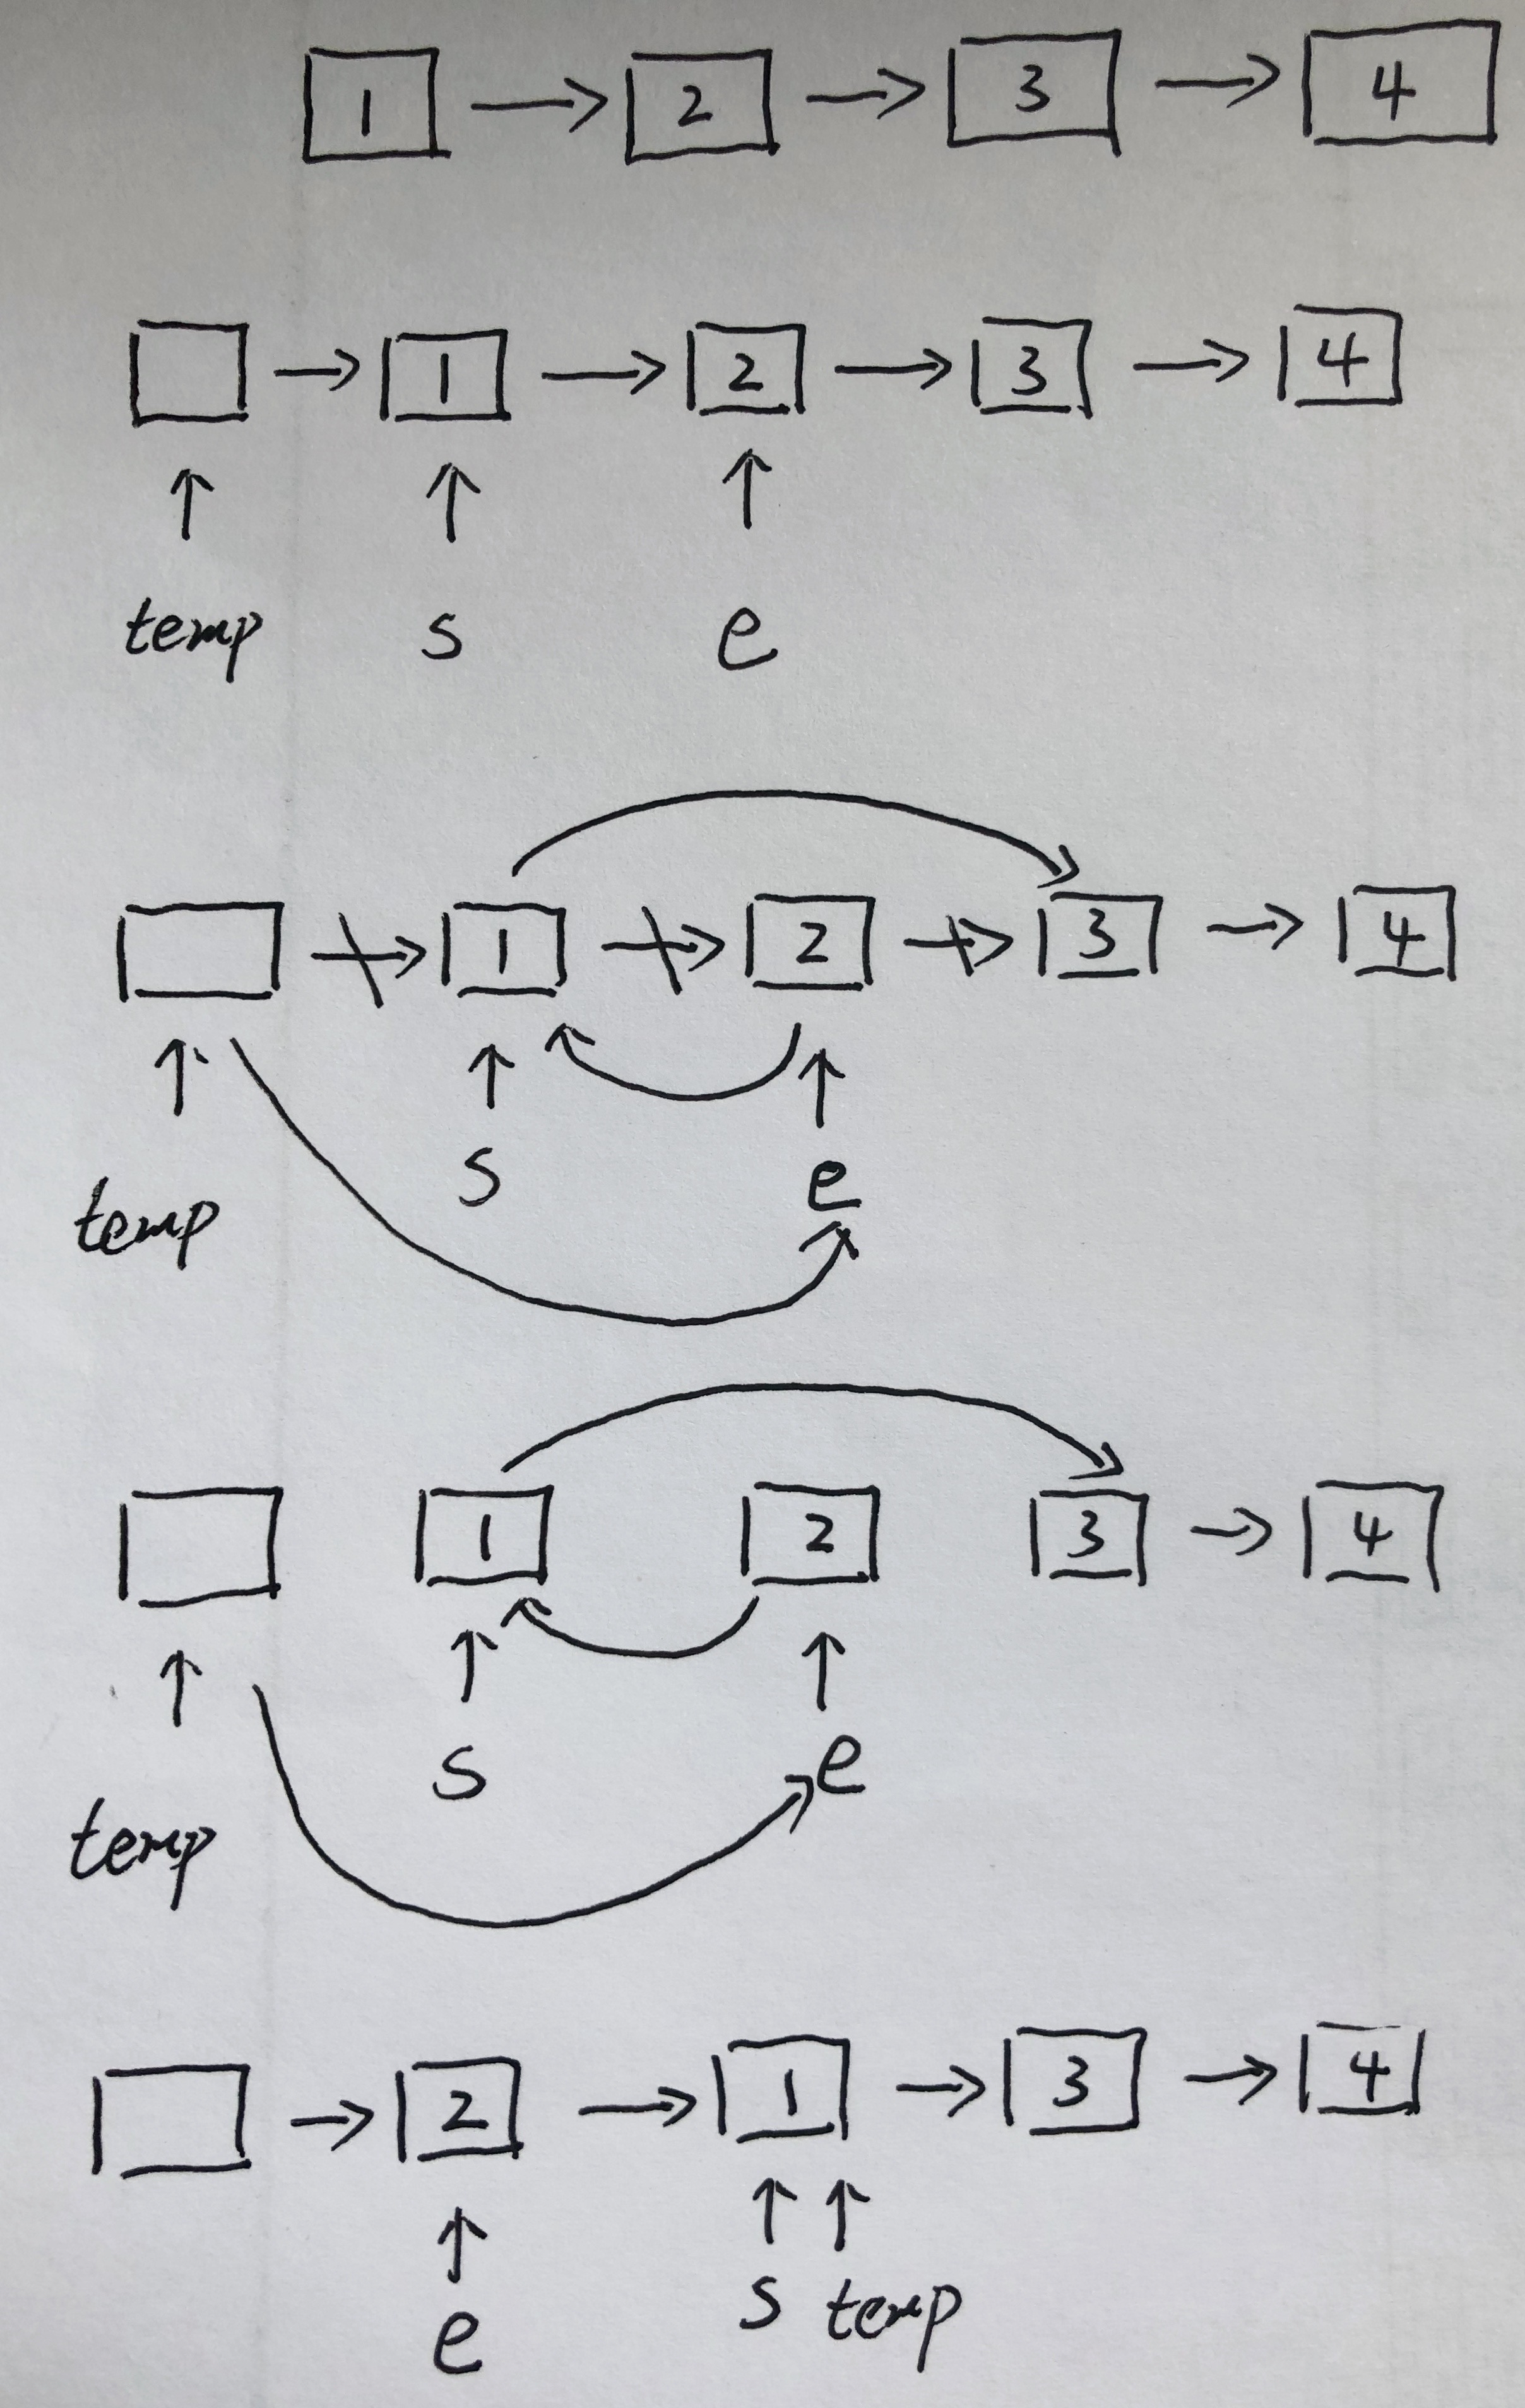 1 → 2 → 3 → 4
→ 1 → 2 → 3 → 4
↑ ↑ ↑
temp s e
→ 1 → 2 → 3 → 4
↑ ↑ ↑
temp s e
1 2 3 → 4
↑ ↑ ↑
temp s e
→ 2 → 1 → 3 → 4
↑ ↑ ↑
e s temp